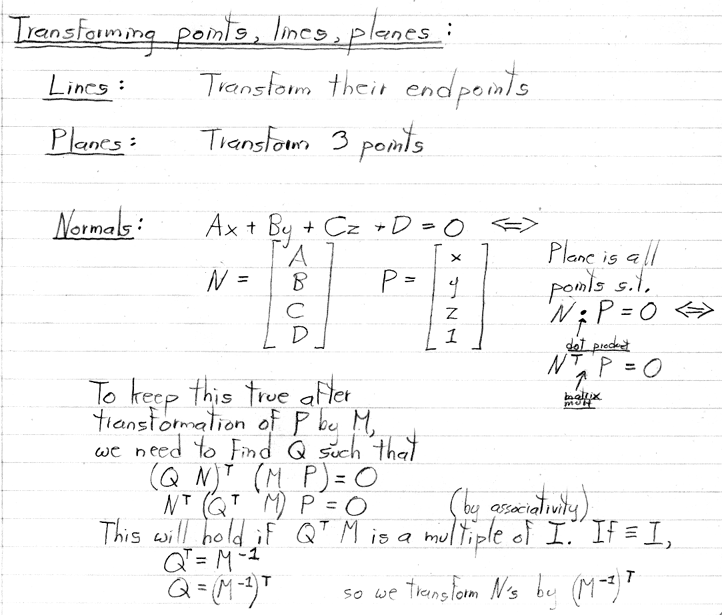 Transforming points, lines, planes:
Lines: Transform their endpoints
Planes: Transform 3 points
Normals: Ax + By + Cz + D = 0 <=>
N = [A B C D] P = [x y z 1]
Plane is all
points s.t.
N • P = 0 <=>
dot product
Nᵀ P = 0
matrix
mult
To keep this true after
transformation of P by M,
we need to find Q such that
(Q N)ᵀ (M P) = 0
Nᵀ (Qᵀ M) P = 0 (by associativity)
This will hold if Qᵀ M is a multiple of I. If ≡ I,
Qᵀ = M⁻¹
Q = (M⁻¹)ᵀ so we transform N's by (M⁻¹)ᵀ